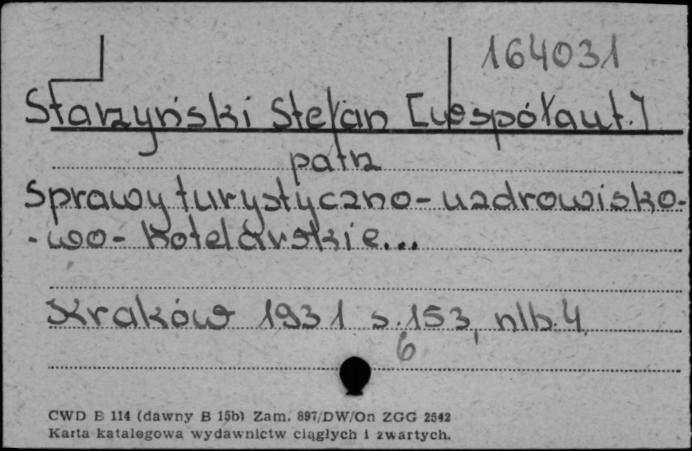 164031
Starzyński Stefan [współaut.]
patrz
Sprawy turystyczno-uzdrowisko-
-wo-hotelarskie...
Kraków 1931 s. 153, nlb. 4
6
CWD E 114 (dawny B 15b) Zam. 897/DW/On ZGG 2542
Karta katalogowa wydawnictw ciągłych i zwartych.